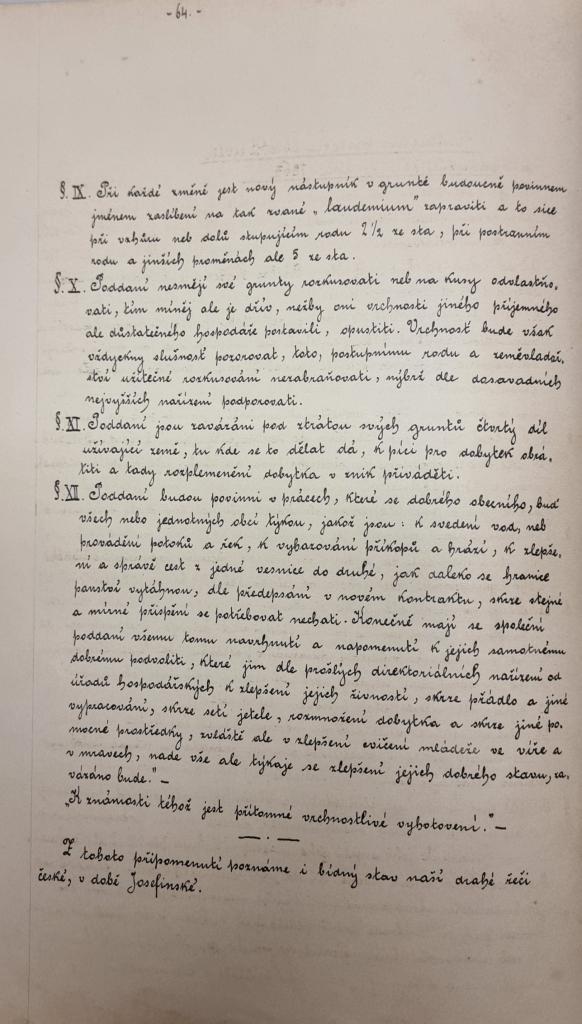 - 64. -
§. IX. Při každé změně jest nový nástupník v gruntě budoucně povinnem
jménem zaslíbení na tak zvané „laudemium" zapraviti a to sice
při vzhůru neb dolů stupujícím rodu 2 1/2 ze sta, při postranním
rodu a jinších proměnách ale 5 ze sta.
§. X. Poddaní nesmějí své grunty rozkusovati neb na kusy odvlastňo-
vati, tím míněj ale je dřív, nežby oni vrchnosti jiného příjemného
ale důstatečného hospodáře postavili, opustiti. Vrchnost bude však
vždycky slušnost pozorovat, toto, postupnímu rodu a zeměvladař-
ství užitečné rozkusování nezabraňovati, nýbrž dle dasavadních
nejvyšších nařízení podporovati.
§. XI. Poddaní jsou zavázáni pod ztrátou svých gruntů čtvrtý díl
užívající země, tu kde se to dělat dá, k píci pro dobytek obrá-
titi a tady rozplemenění dobytka v znik přiváděti.
§. XII. Poddaní budou povinni v prácech, které se dobrého obecního, buď
všech nebo jednotných obcí týkou, jakož jsou: k svedení vod, neb
provádění potoků a řek, k vyhazování příkopů a hrází, k zlepše-
ní a správě cest z jedné vesnice do druhé, jak daleko se hranice
panství vytáhnou, dle předepsání v novém kontraktu, skrze stejné
a mírné přispění se potřebovat nechati. Konečně mají se společní
poddaní všemu tomu navrhnutí a napomenutí k jejich samotnému
dobrému podvoliti, které jim dle prošlých direktoriálních nařízení od
úřadů hospodářských k zlepšení jejich živností, skrze přádlo a jiné
vypracování, skrze setí jetele, rozmnožení dobytka a skrze jiné po-
mocné prostředky, zvláště ale v zlepšení cvičení mládeže ve víře a
v mravech, nade vše ale týkaje se zlepšení jejich dobrého stavu, na-
vázáno bude." —
„K známosti téhož jest přítomné vrchnostlivé vyhotovení." —
Z tohoto připomenutí poznáme i bídný stav naší drahé řeči
české, v době Josefinské.